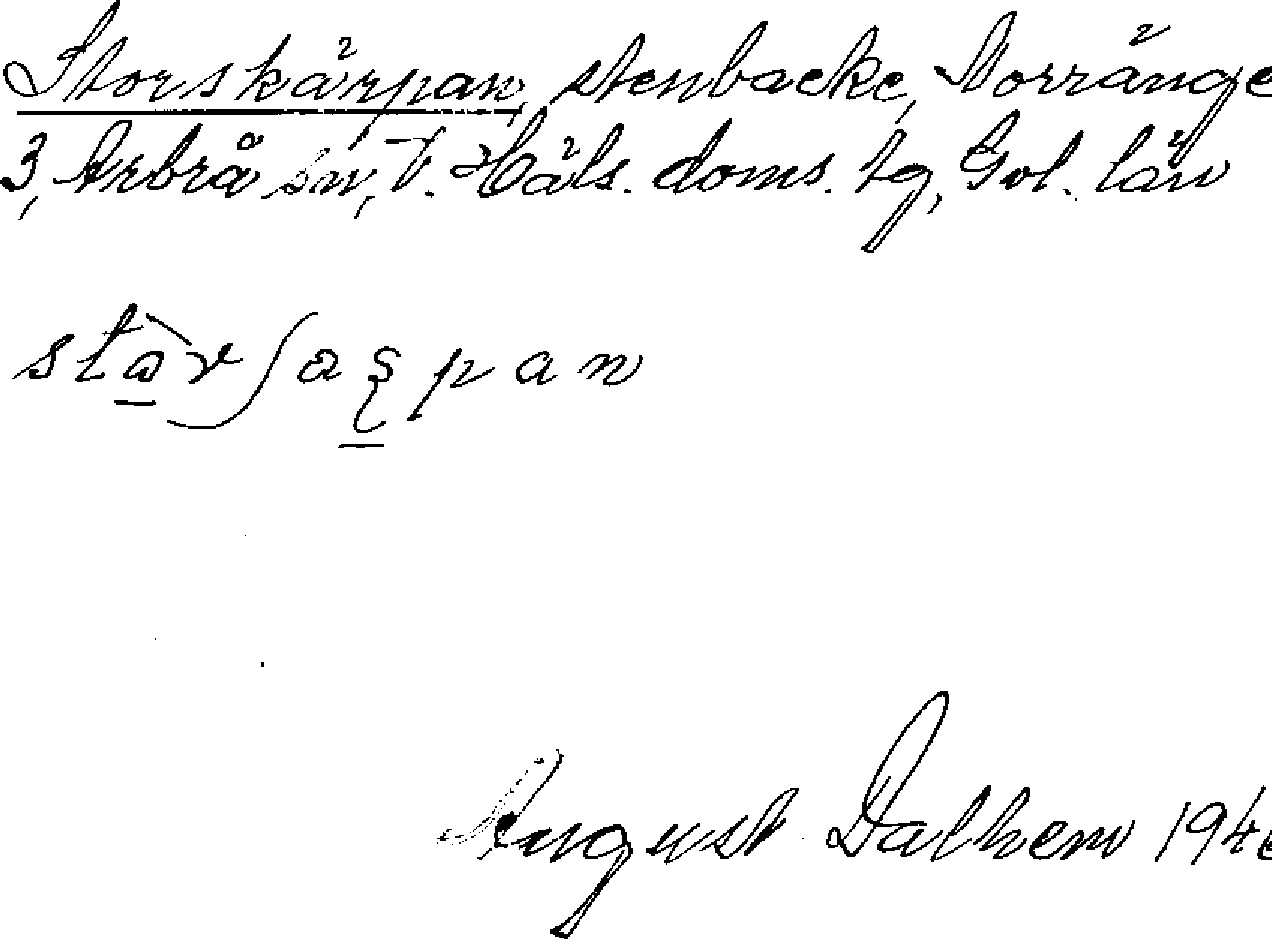 Storskärpan, stenbacke, Norränge
3, Arbrå sn, V. Häls. doms. tg, Gvl. län
August Dalhem 194